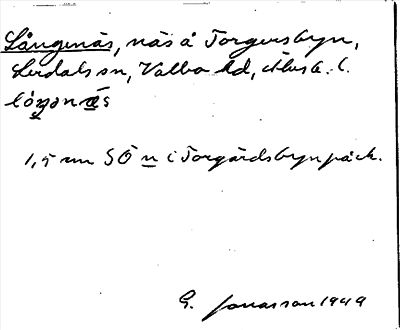 Långenäs, näs å Torgersbyn,
Lerdals sn, Valbo hd, Älvsb. l.
lóŋənæ̀s
1,5 mm SÖ n i Torgårdsbyn på ek.
G. Jonasson 1949